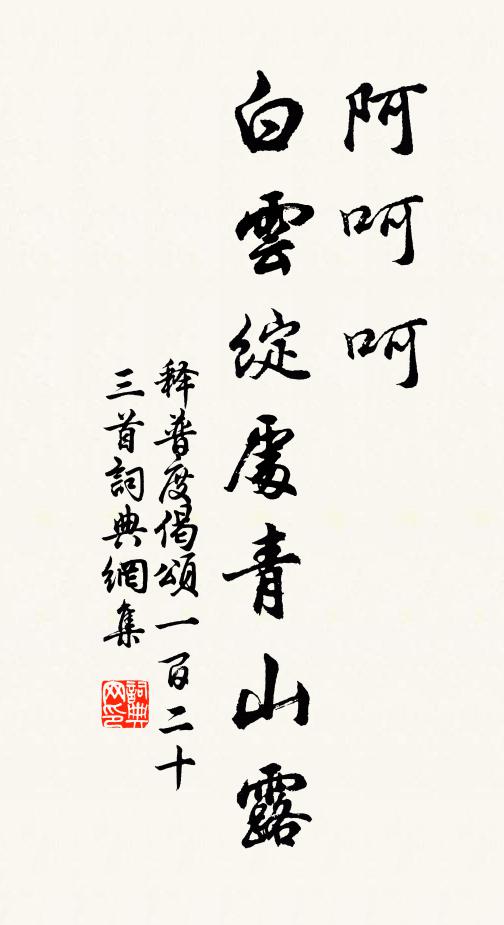 阿呵呵
白雲綻處青山露
释普度偈頌一百二十
三首詞典網集
詞典
网印